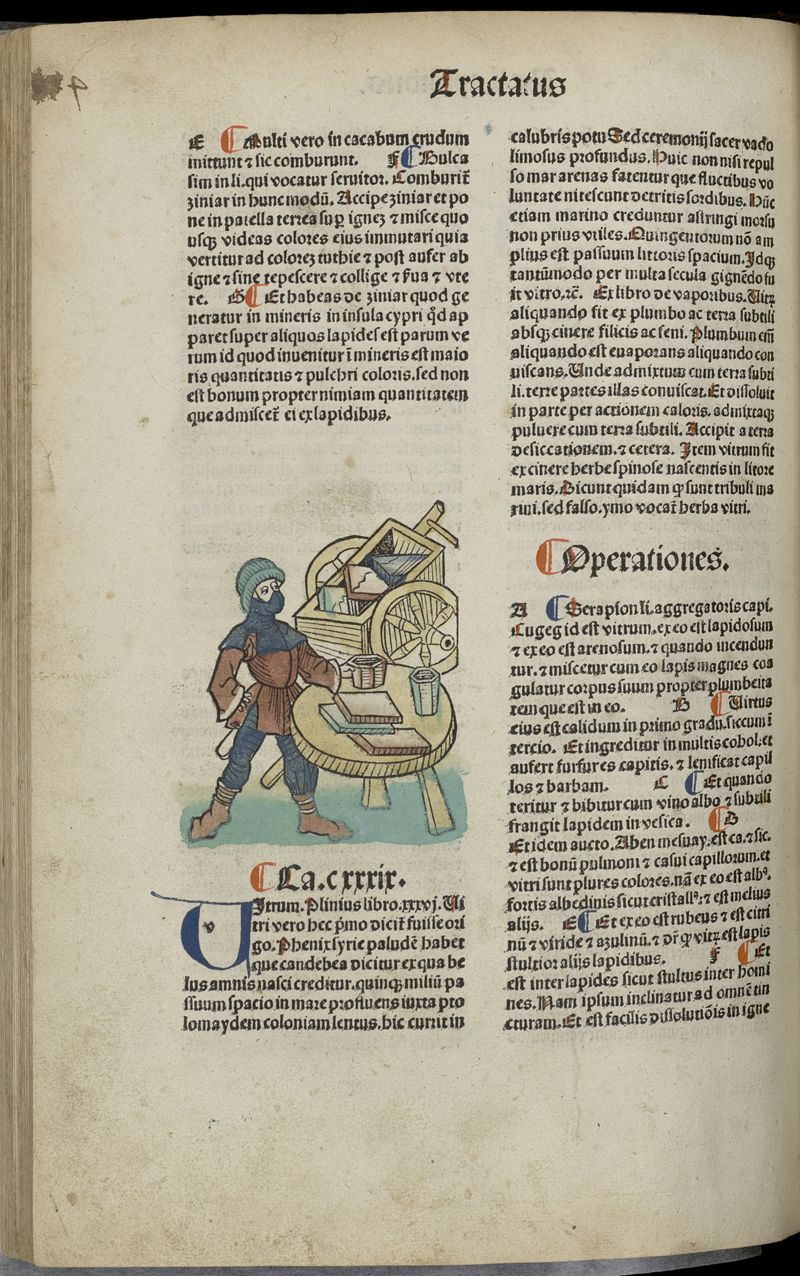 Tractatus
E ¶ Multi vero in cacabum crudum
mittunt ⁊ sic comburunt. F ¶ Bulca
sim in li. qui vocatur seruitor. Comburit̃
ziniar in hunc modũ. Accipe ziniar et po
ne in patella terrea sup̱ ignez ⁊ misce quo
usqꝫ videas colores eius immutari quia
vertitur ad colorez tuthie ⁊ post aufer ab
igne ⁊ sine tepescere ⁊ collige ⁊ ẜua ⁊ vte
re. G ¶ Et habeas de ziniar quod ge
neratur in mineris in insula cypri q̃d ap
paret super aliquos lapides est parum ve
rum id quod inuenitur ĩ mineris est maio
ris quantitatis ⁊ pulchri coloris. sed non
est bonum propter nimiam quantitatem
que admiscet̃ ei ex lapidibus.
¶ Ca. cxxxix.
Vitrum. Plinius libro. xxxvj. Ui
tri vero hec p̃mo dicit̃ fuisse ori
go. Phenix syrie paludẽ habet
que candebea dicitur ex qua be
lus amnis nasci creditur. quinqꝫ miliũ pa
ssuum spacio in mare profluens iuxta pto
lomaydem coloniam lentus. hic currit in
calubris potu Sed ceremonij sacer vado
limosus profundus. Huic non nisi repul
so mar arenas fatentur que fluctibus vo
luntate nitescunt detritis sordibus. Hũc
etiam marino creduntur astringi morsu
non prius vtiles. Quingentorum nõ am
plius est passuum littoris spacium. Idqꝫ
tantũmodo per multa secula gignẽdo fu
it vitro. ⁊c̃. Ex libro de vaporibus. Uitꝝ
aliquando fit ex plumbo ac terra subtili
absqꝫ cinere filicis ac feni. Plumbum em̃
aliquando est euaporans aliquando con
uiscans. Unde admixtum cum terra subti
li. terre partes illas conuiscat. Et dissoluit
in parte per actionem caloris. admixtaqꝫ
puluere cum terra subtili. Accipit a terra
desiccationem. ⁊ cetera. Item vitrum fit
ex cinere herbe spinose nascentis in litore
maris. Dicunt quidam ꝙ sunt tribuli ma
rini. sed falso. ymo vocat̃ herba vitri.
¶ Operationes.
A ¶ Serapion li. aggregatoris capi.
Cugeg id est vitrum. ex eo est lapidosum
⁊ ex eo est arenosum. ⁊ quando incendun
tur. ⁊ miscetur cum eo lapis magnes coa
gulatur corpus suum propter plumbeita
tem que est in eo. B ¶ Uirtus
eius est calidum in primo gradu. siccum ĩ
tercio. Et ingreditur in multis cohol. et
aufert furfures capitis. ⁊ lenificat capil
los ⁊ barbam. C ¶ Et quando
teritur ⁊ bibitur cum vino albo ⁊ subtili
frangit lapidem in vesica. ¶ D
Et idem aucto. Aben mesuay. est ca. ⁊ sic.
⁊ est bonũ pulmoni ⁊ casui capillorum. et
vitri sunt plures colores. nã ex eo est albꝰ.
fortis albedinis sicut cristallꝰ. ⁊ est melius
alijs. E ¶ Et ex eo est rubeus ⁊ est citri
nũ ⁊ viride ⁊ azulinũ. ⁊ dr̃ ꝙ vitꝝ est lapis
stultior alijs lapidibus. F ¶ Et
est inter lapides sicut stultus inter homi
nes. Nam ipsum inclinatur ad omnẽ tin
cturam. Et est facilis dissolutiõis in igne